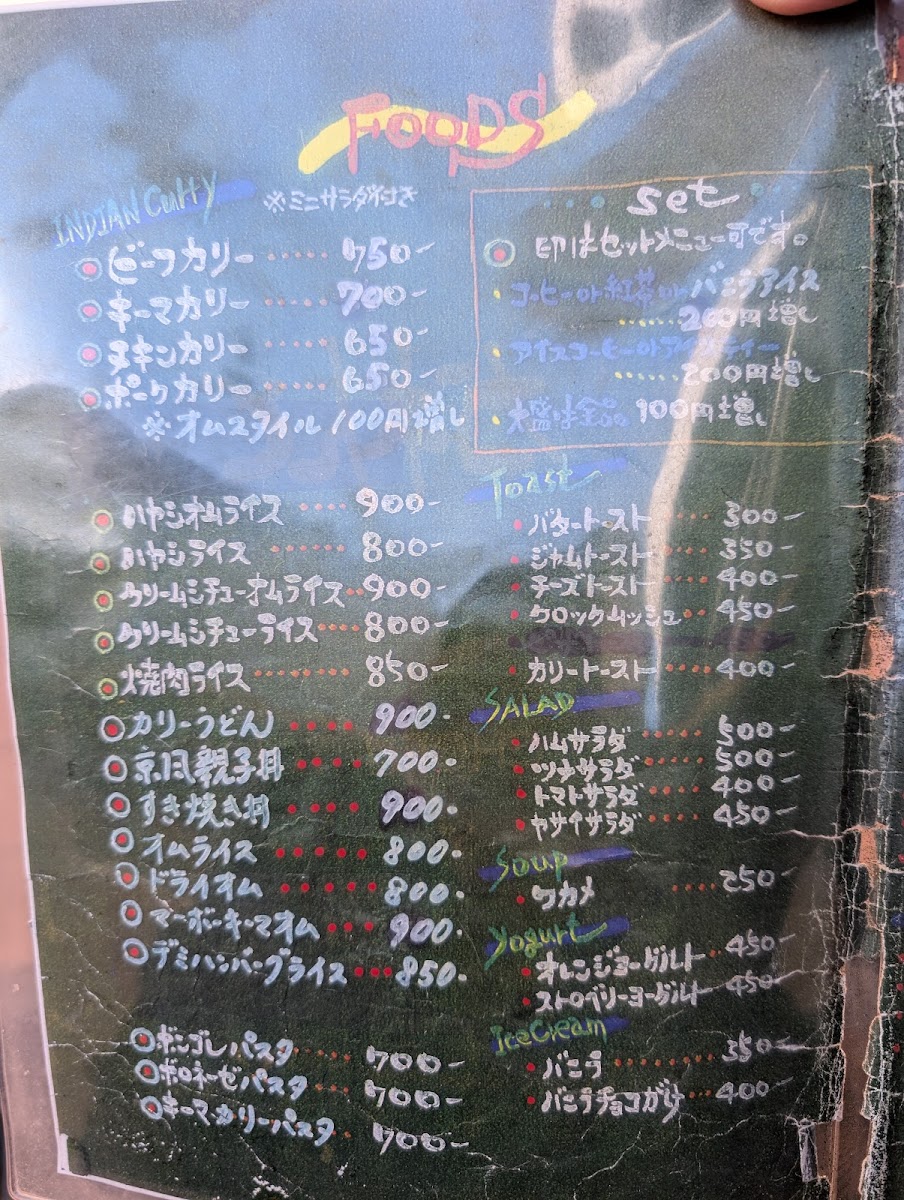 FOODS
INDIAN Curry ※ミニサラダ付き
ビーフカリー ・・・・・ 750-
キーマカリー ・・・・・ 700-
チキンカリー ・・・・・ 650-
ポークカリー ・・・・・ 650-
※オムスタイル 100円増し
set
印はセットメニュー可です。
コーヒーor紅茶orバニラアイス
・・・・・・ 200円増し
アイスコーヒーorアイスティー
・・・・・・ 200円増し
大盛は全品 100円増し
ハヤシオムライス ・・・・ 900-
ハヤシライス ・・・・・・ 800-
クリームシチューオムライス ・・ 900-
クリームシチューライス ・・・・ 800-
焼肉ライス ・・・・・・ 850-
カリーうどん ・・・・ 900-
京風親子丼 ・・・・ 700-
すき焼き丼 ・・・・ 900-
オムライス ・・・・・・ 800-
ドライオム ・・・・・・ 800-
マーボーキーマオム ・・・ 900-
デミハンバーグライス ・・・ 850-
ボンゴレパスタ ・・・・ 700-
ボロネーゼパスタ ・・・ 700-
キーマカリーパスタ ・ 700-
Toast
バタートースト ・・・・ 300-
ジャムトースト ・・・・ 350-
チーズトースト ・・・・ 400-
クロックムッシュ ・・ 450-
カリートースト ・・・・ 400-
SALAD
ハムサラダ ・・・・・・ 500-
ツナサラダ ・・・・・ 500-
トマトサラダ ・・・・・ 400-
ヤサイサラダ ・・・・・ 450-
Soup
ワカメ ・・・・・ 250-
Yogurt
オレンジヨーグルト ・・ 450-
ストロベリーヨーグルト 450-
IceCream
バニラ ・・・・・・・・ 350-
バニラチョコがけ ・・・ 400-